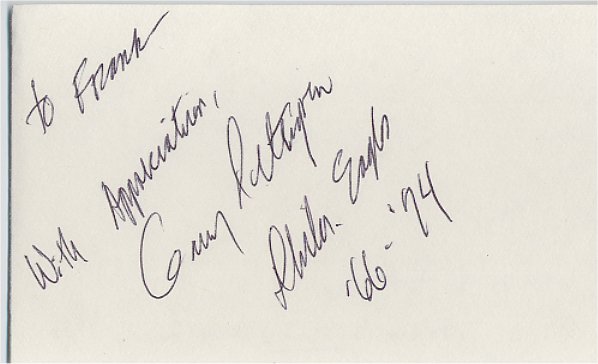 To Frank
With Appreciation,
Gary Pettigrew
Phila. Eagles
'66-'74